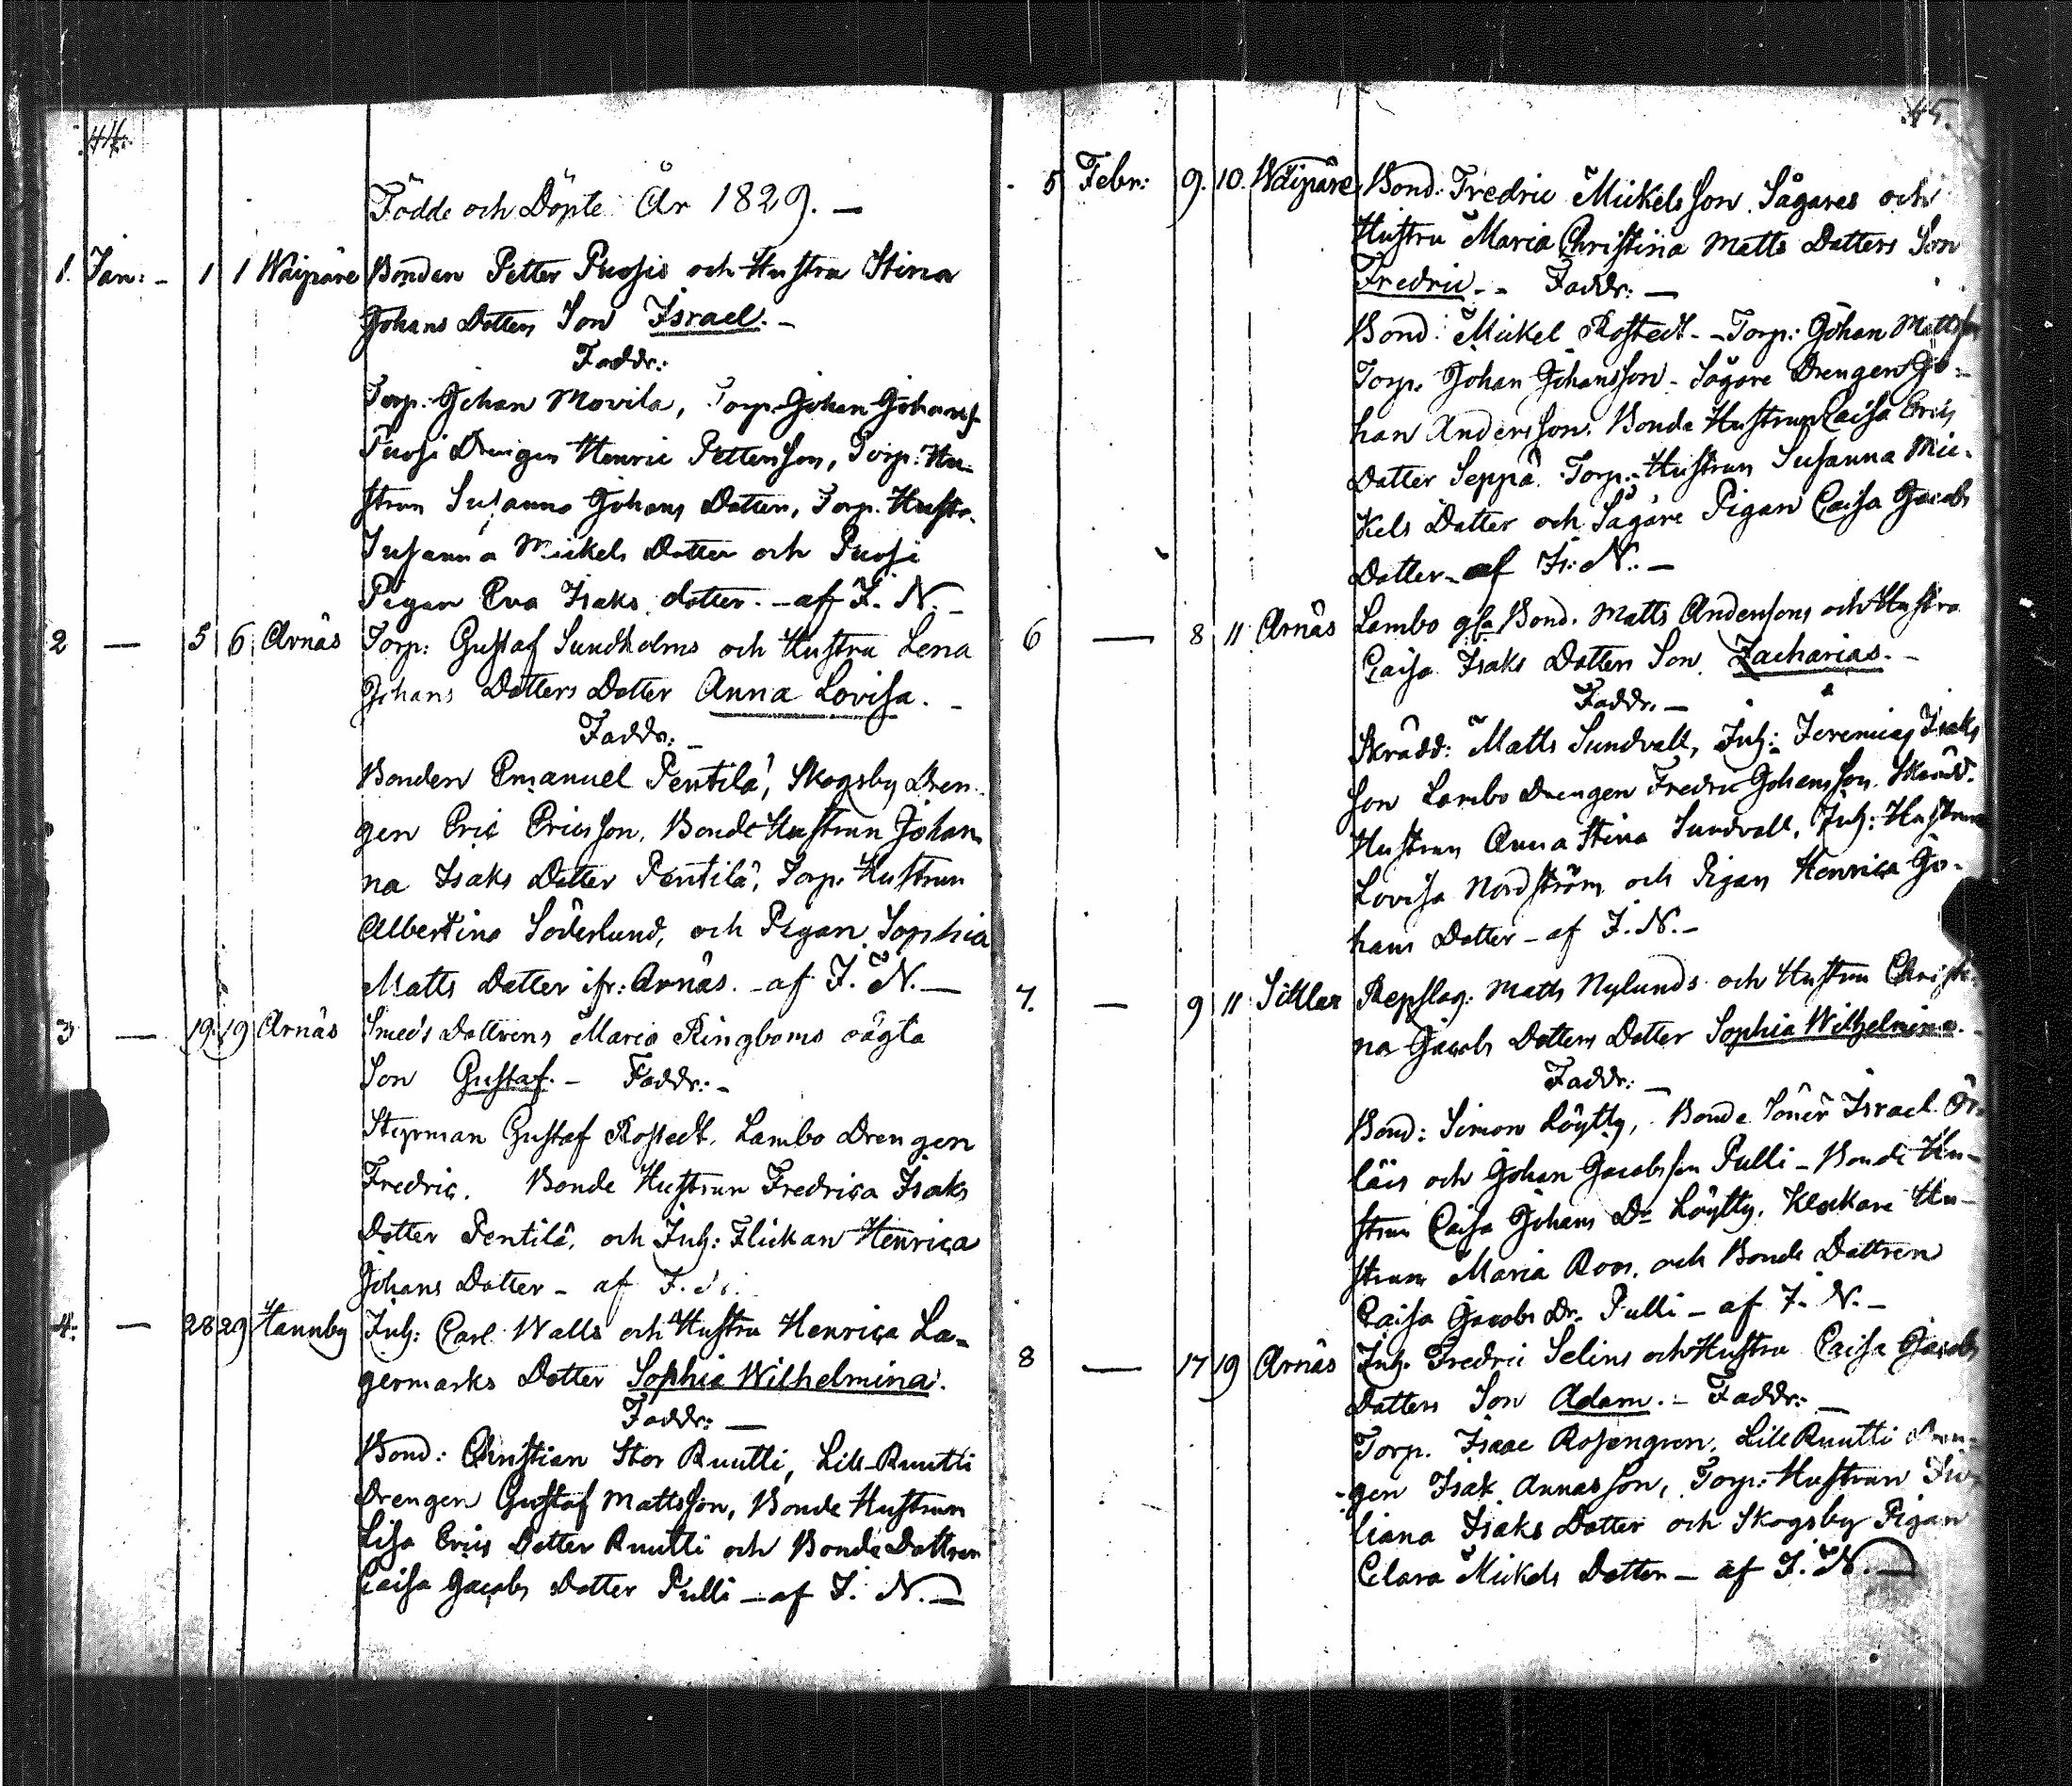 44.
Födde och Döpte År 1829. —
1. Jan: - 1 1 Waipäre Bonden Petter Puosis och Hustru Stina
Johans Dotters Son Israel. -
Faddr:
Torp. Johan Movila, Torp. Johan Johanss.
Puosi Drengen Henric Pettersson, Torp: Hu-
strun Susanna Johans Dotter, Torp. Hustr.
Susanna Mickels Dotter och Puosi
Pigan Eva Isaks dotter. - af F. N. -
2 — 5 6 Arnäs Torp: Gustaf Sundholms och Hustru Lena
Johans Dotters Dotter Anna Lovisa. -
Faddr: -
Bonden Emanuel Pentilä, Skogsby Dren-
gen Eric Ericsson, Bonde Hustrun Johan
na Isaks Dotter Pentilä, Torp. Hustrun
Albertina Söderlund, och Pigan Sophia
Matts Dotter ifr: Arnäs. - af F. N. —
3 — 19 19 Arnäs Smeds Dottrens Maria Ringboms oägta
Son Gustaf. - Faddr: -
Styrman Gustaf Rostedt, Lambo Drengen
Fredric. Bonde Hustrun Fredrica Isaks
Dotter Pentilä, och Inh: Flickan Henrica
Johans Dotter - af F. N.
4: — 28 29 Hannby Inh: Carl Walls och Hustru Henrica La-
germarks Dotter Sophia Wilhelmina.
Faddr: —
Bond: Christian Stor Ruutti, Lill-Ruutti
Drengen Gustaf Mattsson, Bonde Hustrun
Lisa Erics Dotter Ruutti och Bonde Dottren
Caisa Jacobs Dotter Pulli - af F. N. —
45.
5 Febr: 9. 10. Waipäre Bond: Fredric Mickelsson Sågares och
Hustru Maria Christina Matts Dotters Son
Fredric. - Faddr: —
Bond: Mickel Rostedt - Torp: Johan Mattss
Torp. Johan Johansson - Sågare Drengen Jo-
han Andersson. Bonde Hustrun Caisa Erics
Dotter Seppä Torp: Hustrun Susanna Mic-
kels Dotter och Sågare Pigan Caisa Jacobs
Dotter - af F. N. —
6 — 8 11 Arnäs Lambo Bond. Matts Andersons och Hustru
Caisa Isaks Dotters Son Zacharias. -
Faddr. —
Skrädd: Matts Sundvall, Inh: Jeremias Isaks
son Lambo Drengen Fredric Johansson. Skrädd.
Hustrun Anna Stina Sundvall, Inh: Hustrun
Lovisa Nordström och Pigan Henrica Jo-
hans Dotter - af F. N. -
7. — 9 11 Sittlax Repslag: Matts Nylunds och Hustru Christi-
na Jacobs Dotters Dotter Sophia Wilhelmina. -
Faddr: —
Bond: Simon Löytty, Bonde Söner Israel
läis och Johan Jacobsson Pulli - Bonde Hu-
strun Caisa Johans Dr Löytty, Klockare Hu-
strun Maria Roos, och Bonde Dottren
Caisa Jacobs Dr. Pulli - af F. N. -
8 — 17 19 Arnäs Inh. Fredric Selins och Hustru Caisa Jacobs
Dotters Son Adam. - Faddr: —
Torp. Isaac Rosengren, Lill Ruutti Dren-
gen Isak Annasson, Torp: Hustrun Ju-
liana Isaks Dotter och Skogsby Pigan
Clara Mickels Dotter - af F. N. —